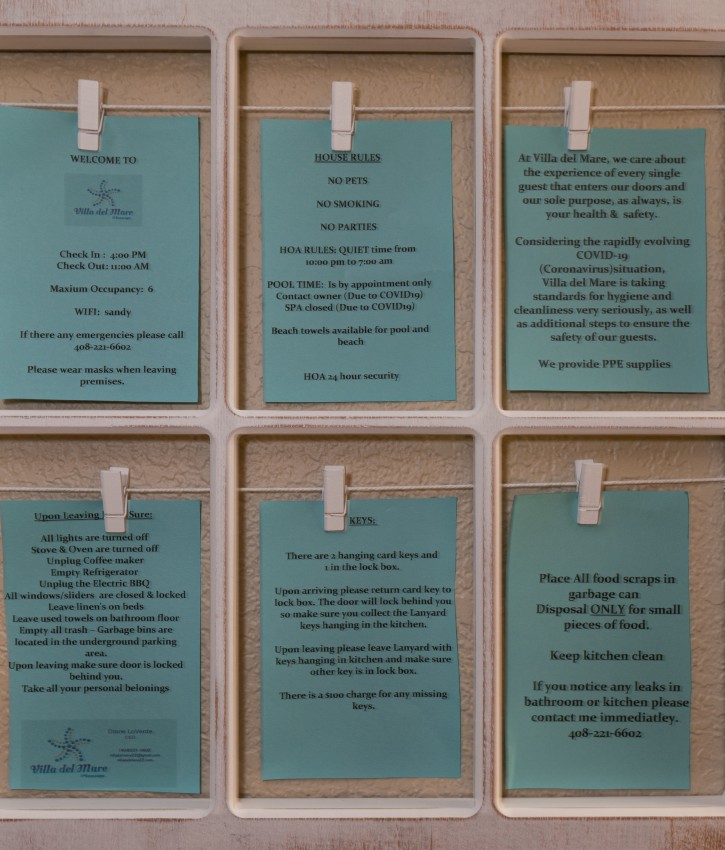 WELCOME TO
Villa del Mare
Check In : 4:00 PM
Check Out: 11:00 AM
Maxium Occupancy: 6
WIFI: sandy
If there any emergencies please call
408-221-6602
Please wear masks when leaving
premises.
HOUSE RULES
NO PETS
NO SMOKING
NO PARTIES
HOA RULES: QUIET time from
10:00 pm to 7:00 am
POOL TIME: Is by appointment only
Contact owner (Due to COVID19)
SPA closed (Due to COVID19)
Beach towels available for pool and
beach
HOA 24 hour security
At Villa del Mare, we care about
the experience of every single
guest that enters our doors and
our sole purpose, as always, is
your health & safety.
Considering the rapidly evolving
COVID-19
(Coronavirus)situation,
Villa del Mare is taking
standards for hygiene and
cleanliness very seriously, as well
as additional steps to ensure the
safety of our guests.
We provide PPE supplies
Upon Leaving Sure:
All lights are turned off
Stove & Oven are turned off
Unplug Coffee maker
Empty Refrigerator
Unplug the Electric BBQ
All windows/sliders are closed & locked
Leave linen's on beds
Leave used towels on bathroom floor
Empty all trash – Garbage bins are
located in the underground parking
area.
Upon leaving make sure door is locked
behind you.
Take all your personal belonings
Villa del Mare
KEYS:
There are 2 hanging card keys and
1 in the lock box.
Upon arriving please return card key to
lock box. The door will lock behind you
so make sure you collect the Lanyard
keys hanging in the kitchen.
Upon leaving please leave Lanyard with
keys hanging in kitchen and make sure
other key is in lock box.
There is a $100 charge for any missing
keys.
Place All food scraps in
garbage can
Disposal ONLY for small
pieces of food.
Keep kitchen clean
If you notice any leaks in
bathroom or kitchen please
contact me immediatley.
408-221-6602